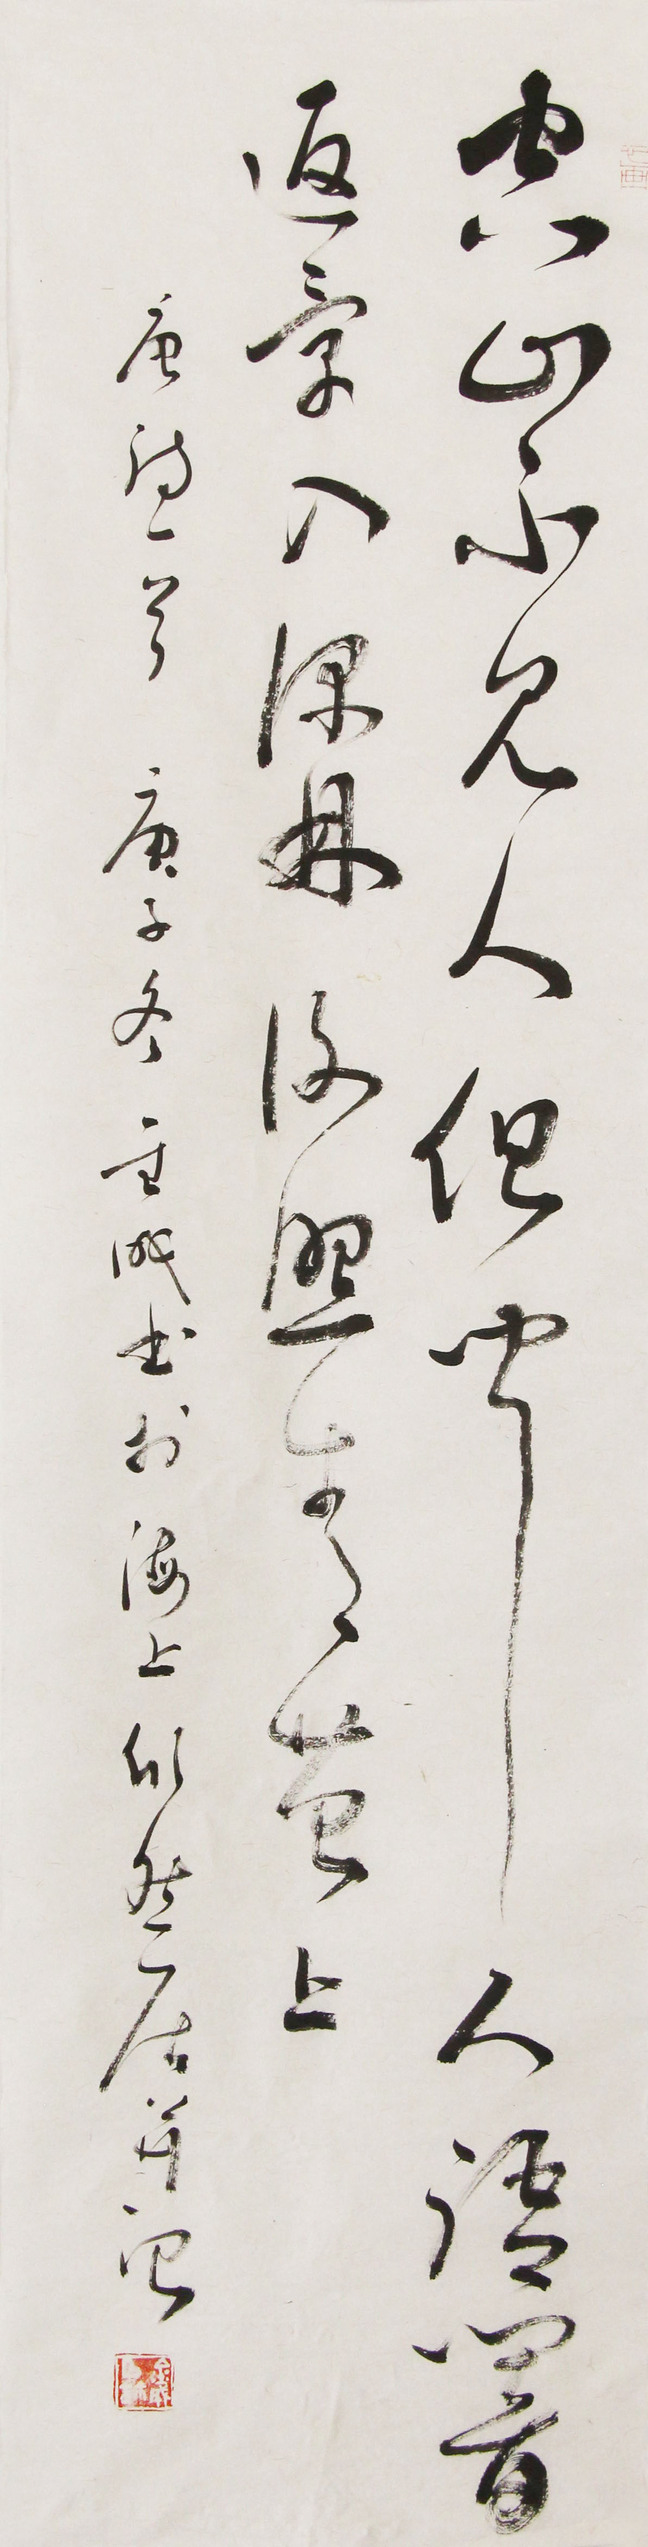 空山不见人但闻人语响
返景入深林复照青苔上
唐诗一首 庚子冬 书于海上 然居并记